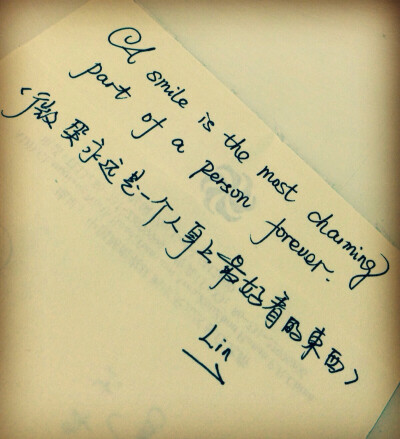 A smile is the most charming
part of a person forever.
(微笑永远是一个人身上最好看的東西)
Lin